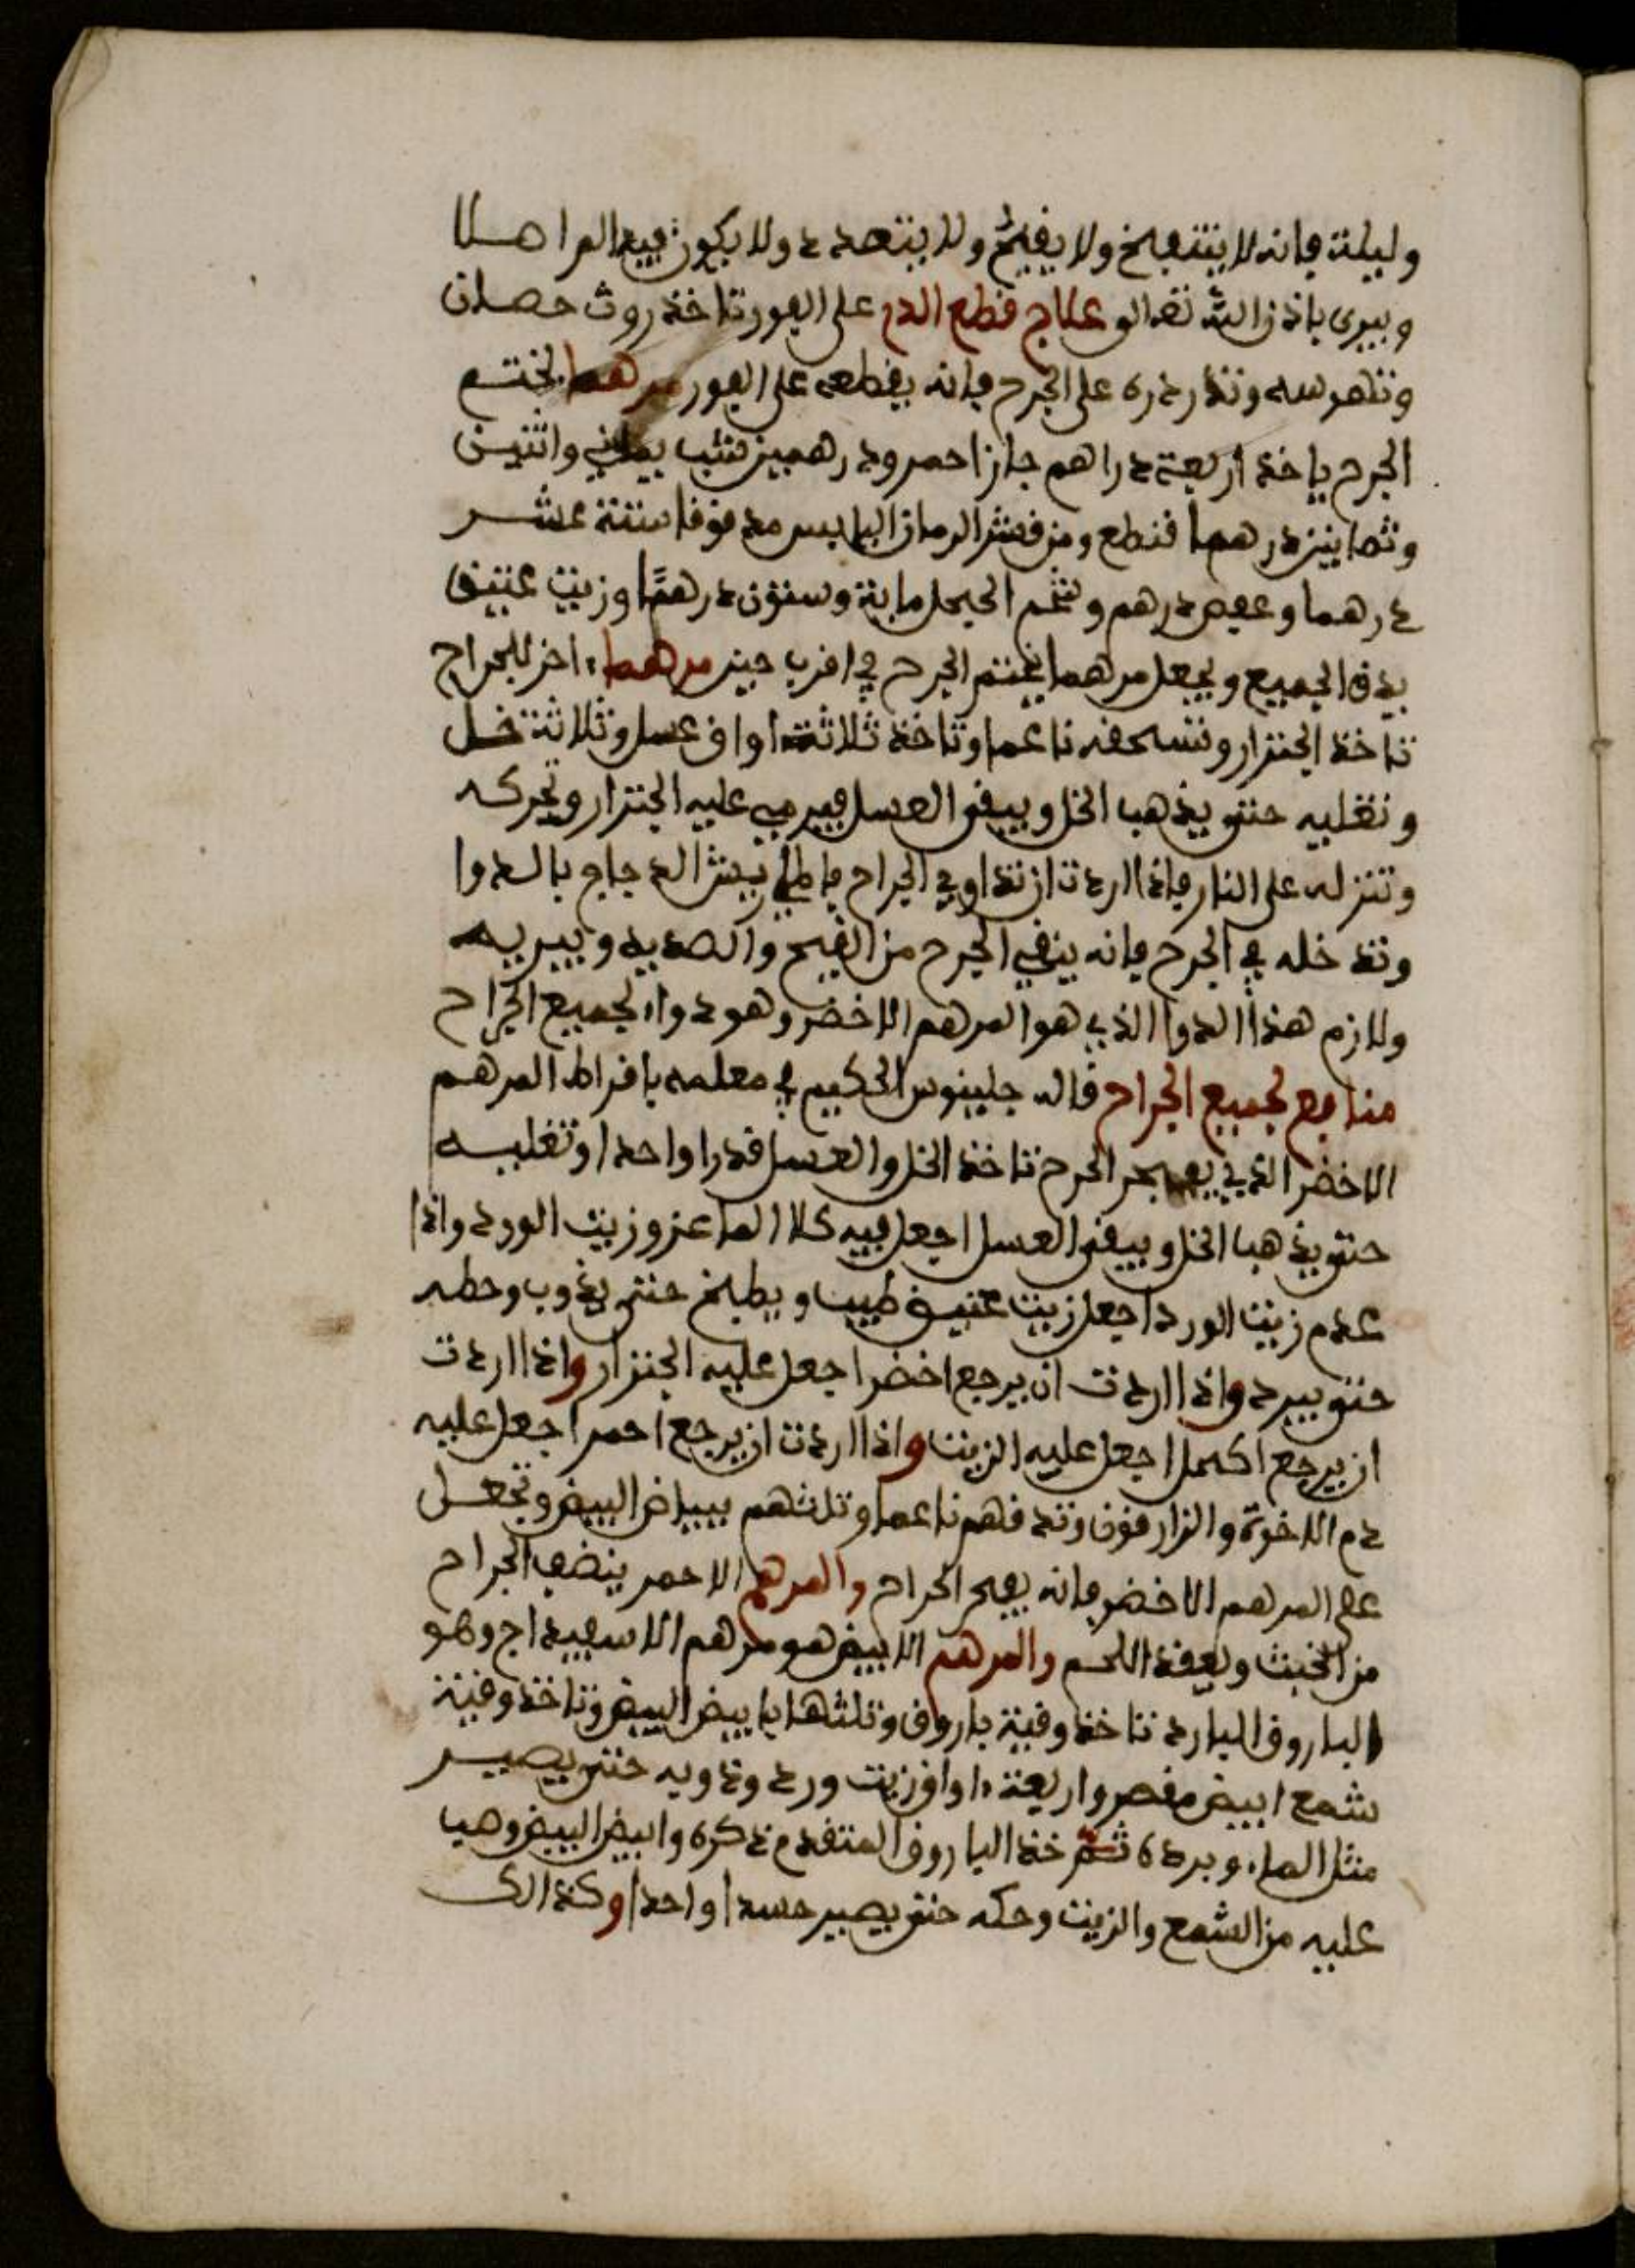 وليلة فإنه لا ينتفخ ولا يقيح ولا يتعدد ولا يكون فيه الم اصلا
ويبرى باذن الله تعالى علاج قطع الدم على الفور تاخذ روث حصان
وتهرسه وتذرذره على الجرح فإنه يقطعه على الفور مرهما يختم
الجرح ياخذ اربعة دراهم جاز احمر ودرهمين شب يماني واثنين
وثمانين درهما قنطع ومن قشر الرمان اليابس مدقوقا ستة عشر
درهما وعفص درهم وشحم العجل ماية وستون درهمًا وزيت عتيق
يدق الجميع ويجعل مرهما يختم الجرح في اقرب حين مرهما اخر للجراح
تاخذ الجنزار وتسحقه ناعما وتاخذ ثلاثة اواق عسل وثلاثة خل
وتغليه حتى يذهب الخل ويبقى العسل فيرمي عليه الجنزار وتحركه
وتنزله على النار فإذا اردت ان تداوي الجراح فاطلي ريش الدجاج بالدوا
وتدخله في الجرح فإنه ينقي الجرح من القيح والصديد ويبريه
ولازم هذا الدوا الذي هو المرهم الاخضر وهو دواء لجميع الجراح
منافع لجميع الجراح قال جلينوس الحكيم في معلمه بافراط المرهم
الاخضر الذي يفجر الجرح تاخذ الخل والعسل قدرا واحدا وتغليه
حتى يذهب الخل ويبقى العسل اجعل فيه كلا الماعز وزيت الورد واذا
عدم زيت الورد اجعل زيت عتيق طيب ويطبخ حتى يذوب وحطه
حتى يبرد واذا اردت ان يرجع اخضر اجعل عليه الجنزار واذا اردت
ان يرجع اكحل اجعل عليه الزيت واذا اردت ان يرجع احمر اجعل عليه
دم الاخوة والزارقون وتدقهم ناعما وتلثهم ببياض البيض وتجعل
على المرهم الاخضر فإنه يفجر الجراح والمرهم الاحمر ينضف الجراح
من الخبث ويعقد اللحم والمرهم الابيض هو مرهم الاسفيداج وهو
الباروق البارد تاخذ وقية باروق وتلثها بابيض البيض وتاخذ وقية
شمع ابيض مقصر واربعة اواق زيت ورد وتدويه حتى يصير
مثل الماء وبرده ثم خذ الباروق المتقدم ذكره وابيض البيض وهيا
عليه من الشمع والزيت وحكه حتى يصير جسدا واحدا وكذالك